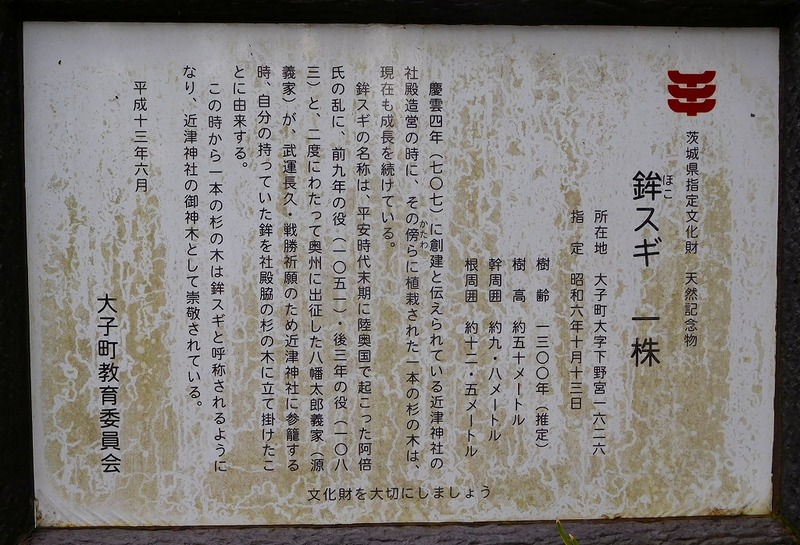 茨城県指定文化財　天然記念物
鉾スギ　一株
ほこ
所在地　大子町大字下野宮一六二六
指　定　昭和六年十月十三日
樹　齢　一三〇〇年（推定）
樹　高　約五十メートル
幹周囲　約九・八メートル
根周囲　約十二・五メートル
慶雲四年（七〇七）に創建と伝えられている近津神社の
社殿造営の時に、その傍らに植栽された一本の杉の木は、
かたわ
現在も成長を続けている。
鉾スギの名称は、平安時代末期に陸奥国で起こった阿倍
氏の乱に、前九年の役（一〇五一）・後三年の役（一〇八
三）と、二度にわたって奥州に出征した八幡太郎義家（源
義家）が、武運長久・戦勝祈願のため近津神社に参籠する
時、自分の持っていた鉾を社殿脇の杉の木に立て掛けたこ
とに由来する。
この時から一本の杉の木は鉾スギと呼称されるように
なり、近津神社の御神木として崇敬されている。
平成十三年六月
大子町教育委員会
文化財を大切にしましょう